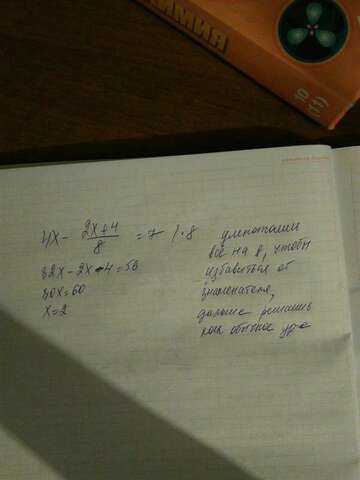 ХИМИЯ
10
(11)
4x - \frac{2x+4}{8} = 7 / · 8
32x - 2x - 4 = 56
30x = 60
x = 2
умножаешь
все на 8, чтобы
избавиться от
знаменателя,
дальше решаешь
как обычное ур-е